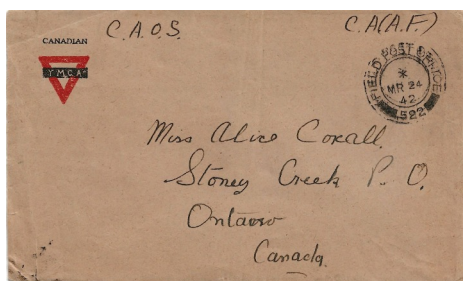 C.A.O.S.
C.A.(A.F.)
CANADIAN
Y.M.C.A.
FIELD POST OFFICE
*
MR 24
42
522
Miss Alice Coxall.
Stoney Creek P. O.
Ontario
Canada.